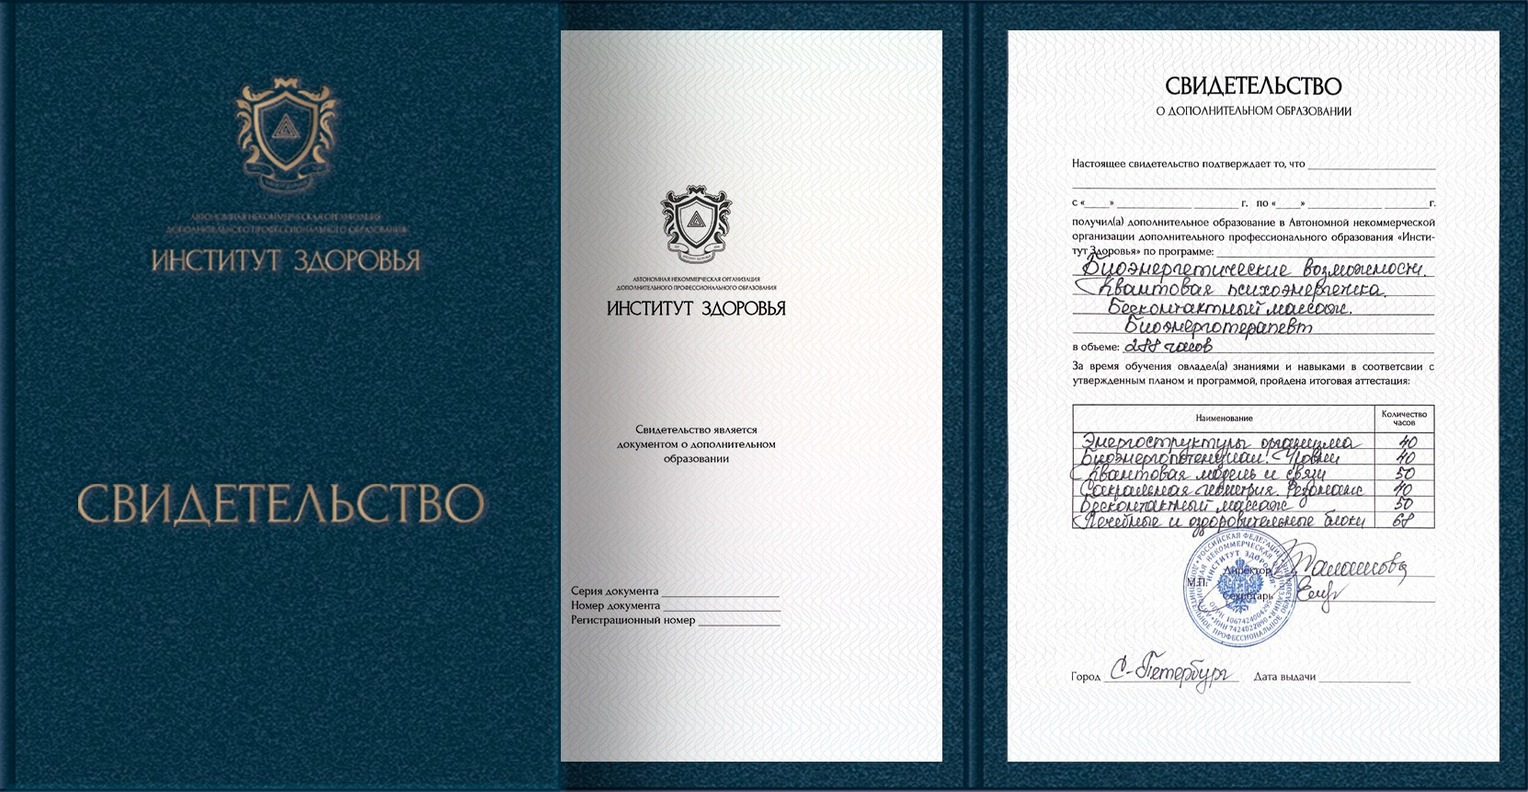 ИНСТИТУТ ЗДОРОВЬЯ
АВТОНОМНАЯ НЕКОММЕРЧЕСКАЯ ОРГАНИЗАЦИЯ
ДОПОЛНИТЕЛЬНОГО ПРОФЕССИОНАЛЬНОГО ОБРАЗОВАНИЯ
ИНСТИТУТ ЗДОРОВЬЯ
СВИДЕТЕЛЬСТВО
АВТОНОМНАЯ НЕКОММЕРЧЕСКАЯ ОРГАНИЗАЦИЯ
ДОПОЛНИТЕЛЬНОГО ПРОФЕССИОНАЛЬНОГО ОБРАЗОВАНИЯ
ИНСТИТУТ ЗДОРОВЬЯ
Свидетельство является
документом о дополнительном
образовании
Серия документа
Номер документа
Регистрационный номер
СВИДЕТЕЛЬСТВО
О ДОПОЛНИТЕЛЬНОМ ОБРАЗОВАНИИ
Настоящее свидетельство подтверждает то, что
с «____» г. по «____» г.
получил(а) дополнительное образование в Автономной некоммерческой
организации дополнительного профессионального образования «Инсти-
тут Здоровья» по программе:
Биоэнергетические возможности.
Квантовая психоэнергетика.
Бесконтактный массаж.
Биоэнерготерапевт
в объеме: 288 часов
За время обучения овладел(а) знаниями и навыками в соответсвии с
утвержденным планом и программой, пройдена итоговая аттестация:
Наименование Количество часов
Энергоструктуры организма 40
Биоэнергопотенциал. Уровни 40
Квантовая модель и связи 50
Сакральная геометрия. Резонанс 40
Бесконтактный массаж 50
Лечебные и оздоровительные блоки 68
Директор
М.П.
Секретарь
РОССИЙСКАЯ ФЕДЕРАЦИЯ
ИНСТИТУТ ЗДОРОВЬЯ
Город С-Петербург Дата выдачи